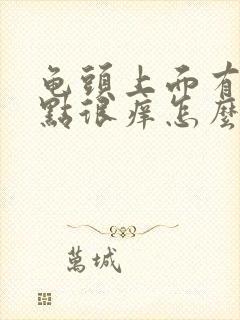 龟頭上面有
點很痒怎麼
萬城